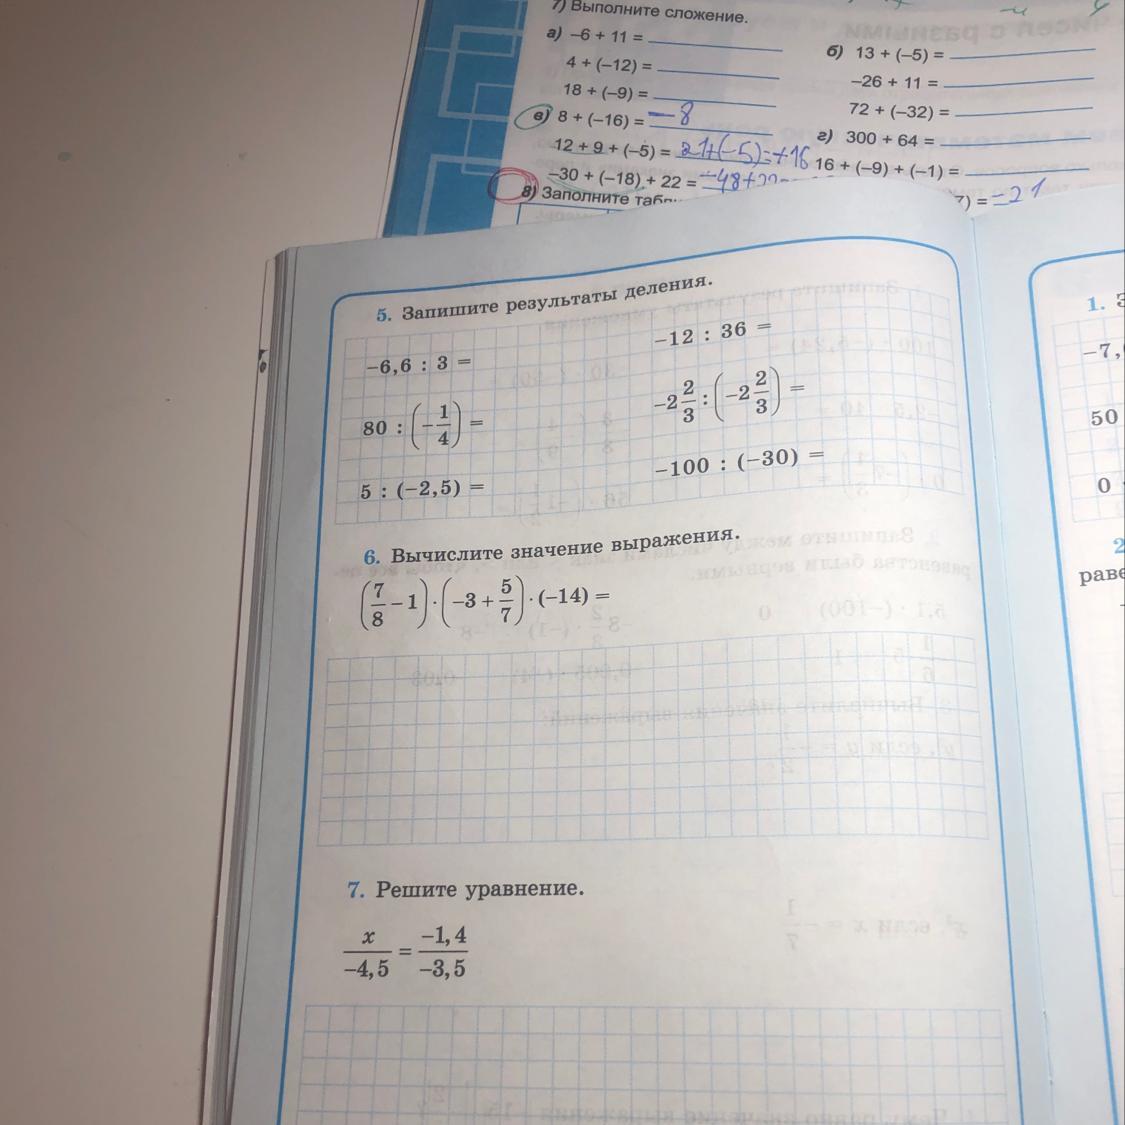 7) Выполните сложение.
а) –6 + 11 =
4 + (–12) =
18 + (–9) =
в) 8 + (–16) = –8
12 + 9 + (–5) = 21+(–5)=+16
–30 + (–18) + 22 = –48+22
б) 13 + (–5) =
–26 + 11 =
72 + (–32) =
г) 300 + 64 =
16 + (–9) + (–1) =
7) = –21
8) Заполните
5. Запишите результаты деления.
–6,6 : 3 =
80 : (–1/4) =
5 : (–2,5) =
–12 : 36 =
–2 2/3 : (–2 2/3) =
–100 : (–30) =
6. Вычислите значение выражения.
(7/8 – 1) · (–3 + 5/7) · (–14) =
7. Решите уравнение.
x/–4,5 = –1,4/–3,5
1.
–7,
50
0
2